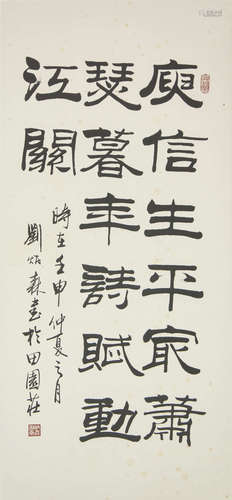 庾信生平㝡蕭
瑟暮年詩賦動
江關
時在壬申仲夏之月
劉炳森書於田園莊